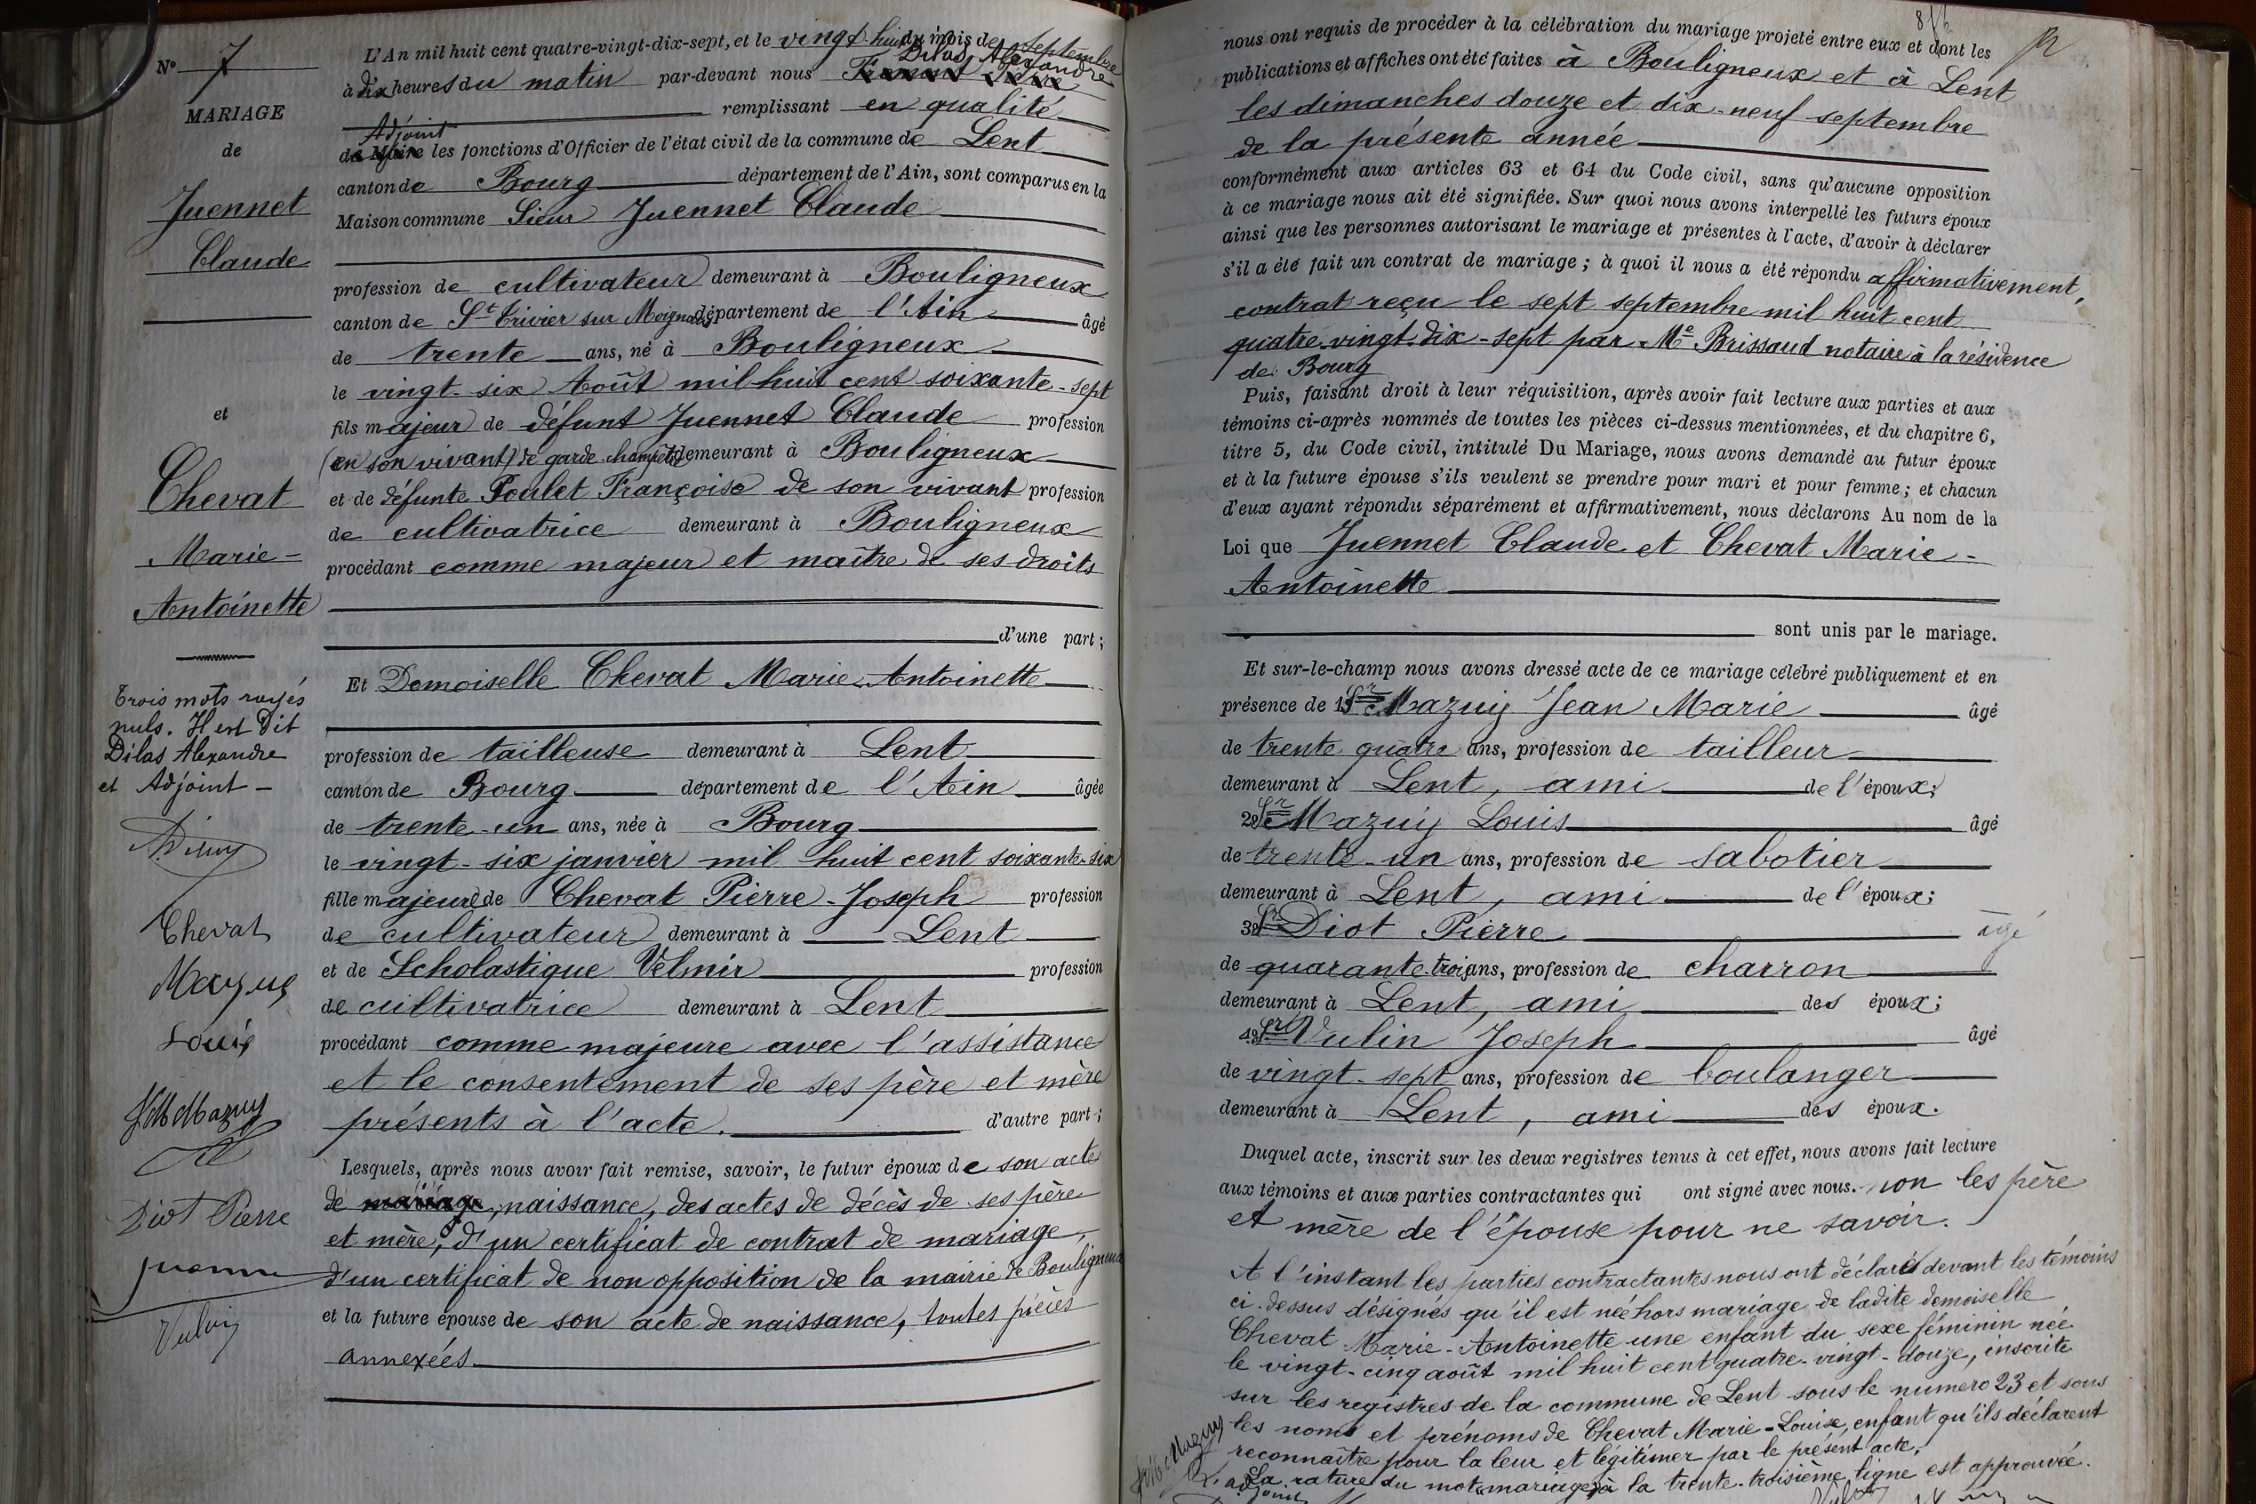 N° 7
MARIAGE
de
Juennet
Claude
et
Chevat
Marie-
Antoinette
Trois mots rayés
nuls. Il est dit
Dilas Alexandre
et Adjoint -
Chevat
Mazuy
Louis
J M Mazuy
Diot Pierre
Juennet
Vulin
L'An mil huit cent quatre-vingt-dix-sept, et le vingt-huit du mois de septembre
Dilas Alexandre
à dix heures du matin par-devant nous
remplissant en qualité
Adjoint
de Maire les fonctions d'Officier de l'état civil de la commune de Lent
canton de Bourg département de l'Ain, sont comparus en la
Maison commune Sieur Juennet Claude
profession de cultivateur demeurant à Bouligneux
canton de St Trivier sur Moignans département de l'Ain âgé
de trente ans, né à Bouligneux
le vingt-six Août mil huit cent soixante-sept
fils majeur de défunt Juennet Claude profession
(en son vivant) de garde champêtre demeurant à Bouligneux
et de défunte Poulet Françoise de son vivant profession
de cultivatrice demeurant à Bouligneux
procédant comme majeur et maître de ses droits
d'une part;
Et Demoiselle Chevat Marie-Antoinette
profession de tailleuse demeurant à Lent
canton de Bourg département de l'Ain âgée
de trente-un ans, née à Bourg
le vingt-six janvier mil huit cent soixante-six
fille majeure de Chevat Pierre-Joseph profession
de cultivateur demeurant à Lent
et de Scholastique Velmir profession
de cultivatrice demeurant à Lent
procédant comme majeure avec l'assistance
et le consentement de ses père et mère
présents à l'acte. d'autre part;
Lesquels, après nous avoir fait remise, savoir, le futur époux de son acte
de mariage, naissance, des actes de décès de ses père
et mère, d'un certificat de contrat de mariage,
d'un certificat de non opposition de la mairie de Bouligneux
et la future épouse de son acte de naissance, toutes pièces
annexées.
nous ont requis de procéder à la célébration du mariage projeté entre eux et dont les
publications et affiches ont été faites à Bouligneux et à Lent
les dimanches douze et dix-neuf septembre
de la présente année
conformément aux articles 63 et 64 du Code civil, sans qu'aucune opposition
à ce mariage nous ait été signifiée. Sur quoi nous avons interpellé les futurs époux
ainsi que les personnes autorisant le mariage et présentes à l'acte, d'avoir à déclarer
s'il a été fait un contrat de mariage; à quoi il nous a été répondu affirmativement,
contrat reçu le sept septembre mil huit cent
quatre-vingt-dix-sept par Me Brissaud notaire à la résidence
de Bourg
Puis, faisant droit à leur réquisition, après avoir fait lecture aux parties et aux
témoins ci-après nommés de toutes les pièces ci-dessus mentionnées, et du chapitre 6,
titre 5, du Code civil, intitulé Du Mariage, nous avons demandé au futur époux
et à la future épouse s'ils veulent se prendre pour mari et pour femme; et chacun
d'eux ayant répondu séparément et affirmativement, nous déclarons Au nom de la
Loi que Juennet Claude et Chevat Marie-
Antoinette
sont unis par le mariage.
Et sur-le-champ nous avons dressé acte de ce mariage célébré publiquement et en
présence de 1° Sr Mazuy Jean Marie âgé
de trente quatre ans, profession de tailleur
demeurant à Lent, ami de l'époux;
2° Sr Mazuy Louis âgé
de trente-un ans, profession de sabotier
demeurant à Lent, ami de l'époux;
3° Sr Diot Pierre âgé
de quarante-trois ans, profession de charron
demeurant à Lent, ami des époux;
4° Sr Vulin Joseph âgé
de vingt-sept ans, profession de boulanger
demeurant à Lent, ami des époux.
Duquel acte, inscrit sur les deux registres tenus à cet effet, nous avons fait lecture
aux témoins et aux parties contractantes qui ont signé avec nous. non les père
et mère de l'épouse pour ne savoir.
A l'instant les parties contractantes nous ont déclaré devant les témoins
ci-dessus désignés qu'il est née hors mariage de ladite demoiselle
Chevat Marie-Antoinette une enfant du sexe féminin née
le vingt-cinq août mil huit cent quatre-vingt-douze, inscrite
sur les registres de la commune de Lent sous le numero 23 et sous
les noms et prénoms de Chevat Marie-Louise, enfant qu'ils déclarent
reconnaître pour la leur et légitimer par le présent acte.
La rature du mot "mariage" à la trente-troisième ligne est approuvée.